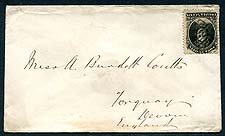 Miss A. Burdett Coutts
Torquay
Devon
England